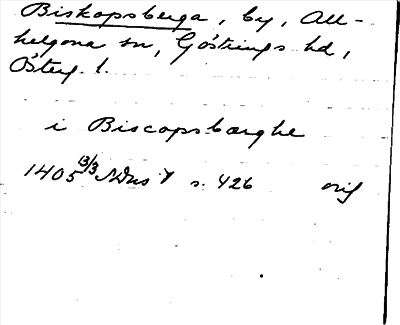 Biskopsberga, by, All-
helgona sn, Göstrings hd,
Österg. l.
i Biscopsbærghe
1405 13/3 SDns 1 s. 426 orig